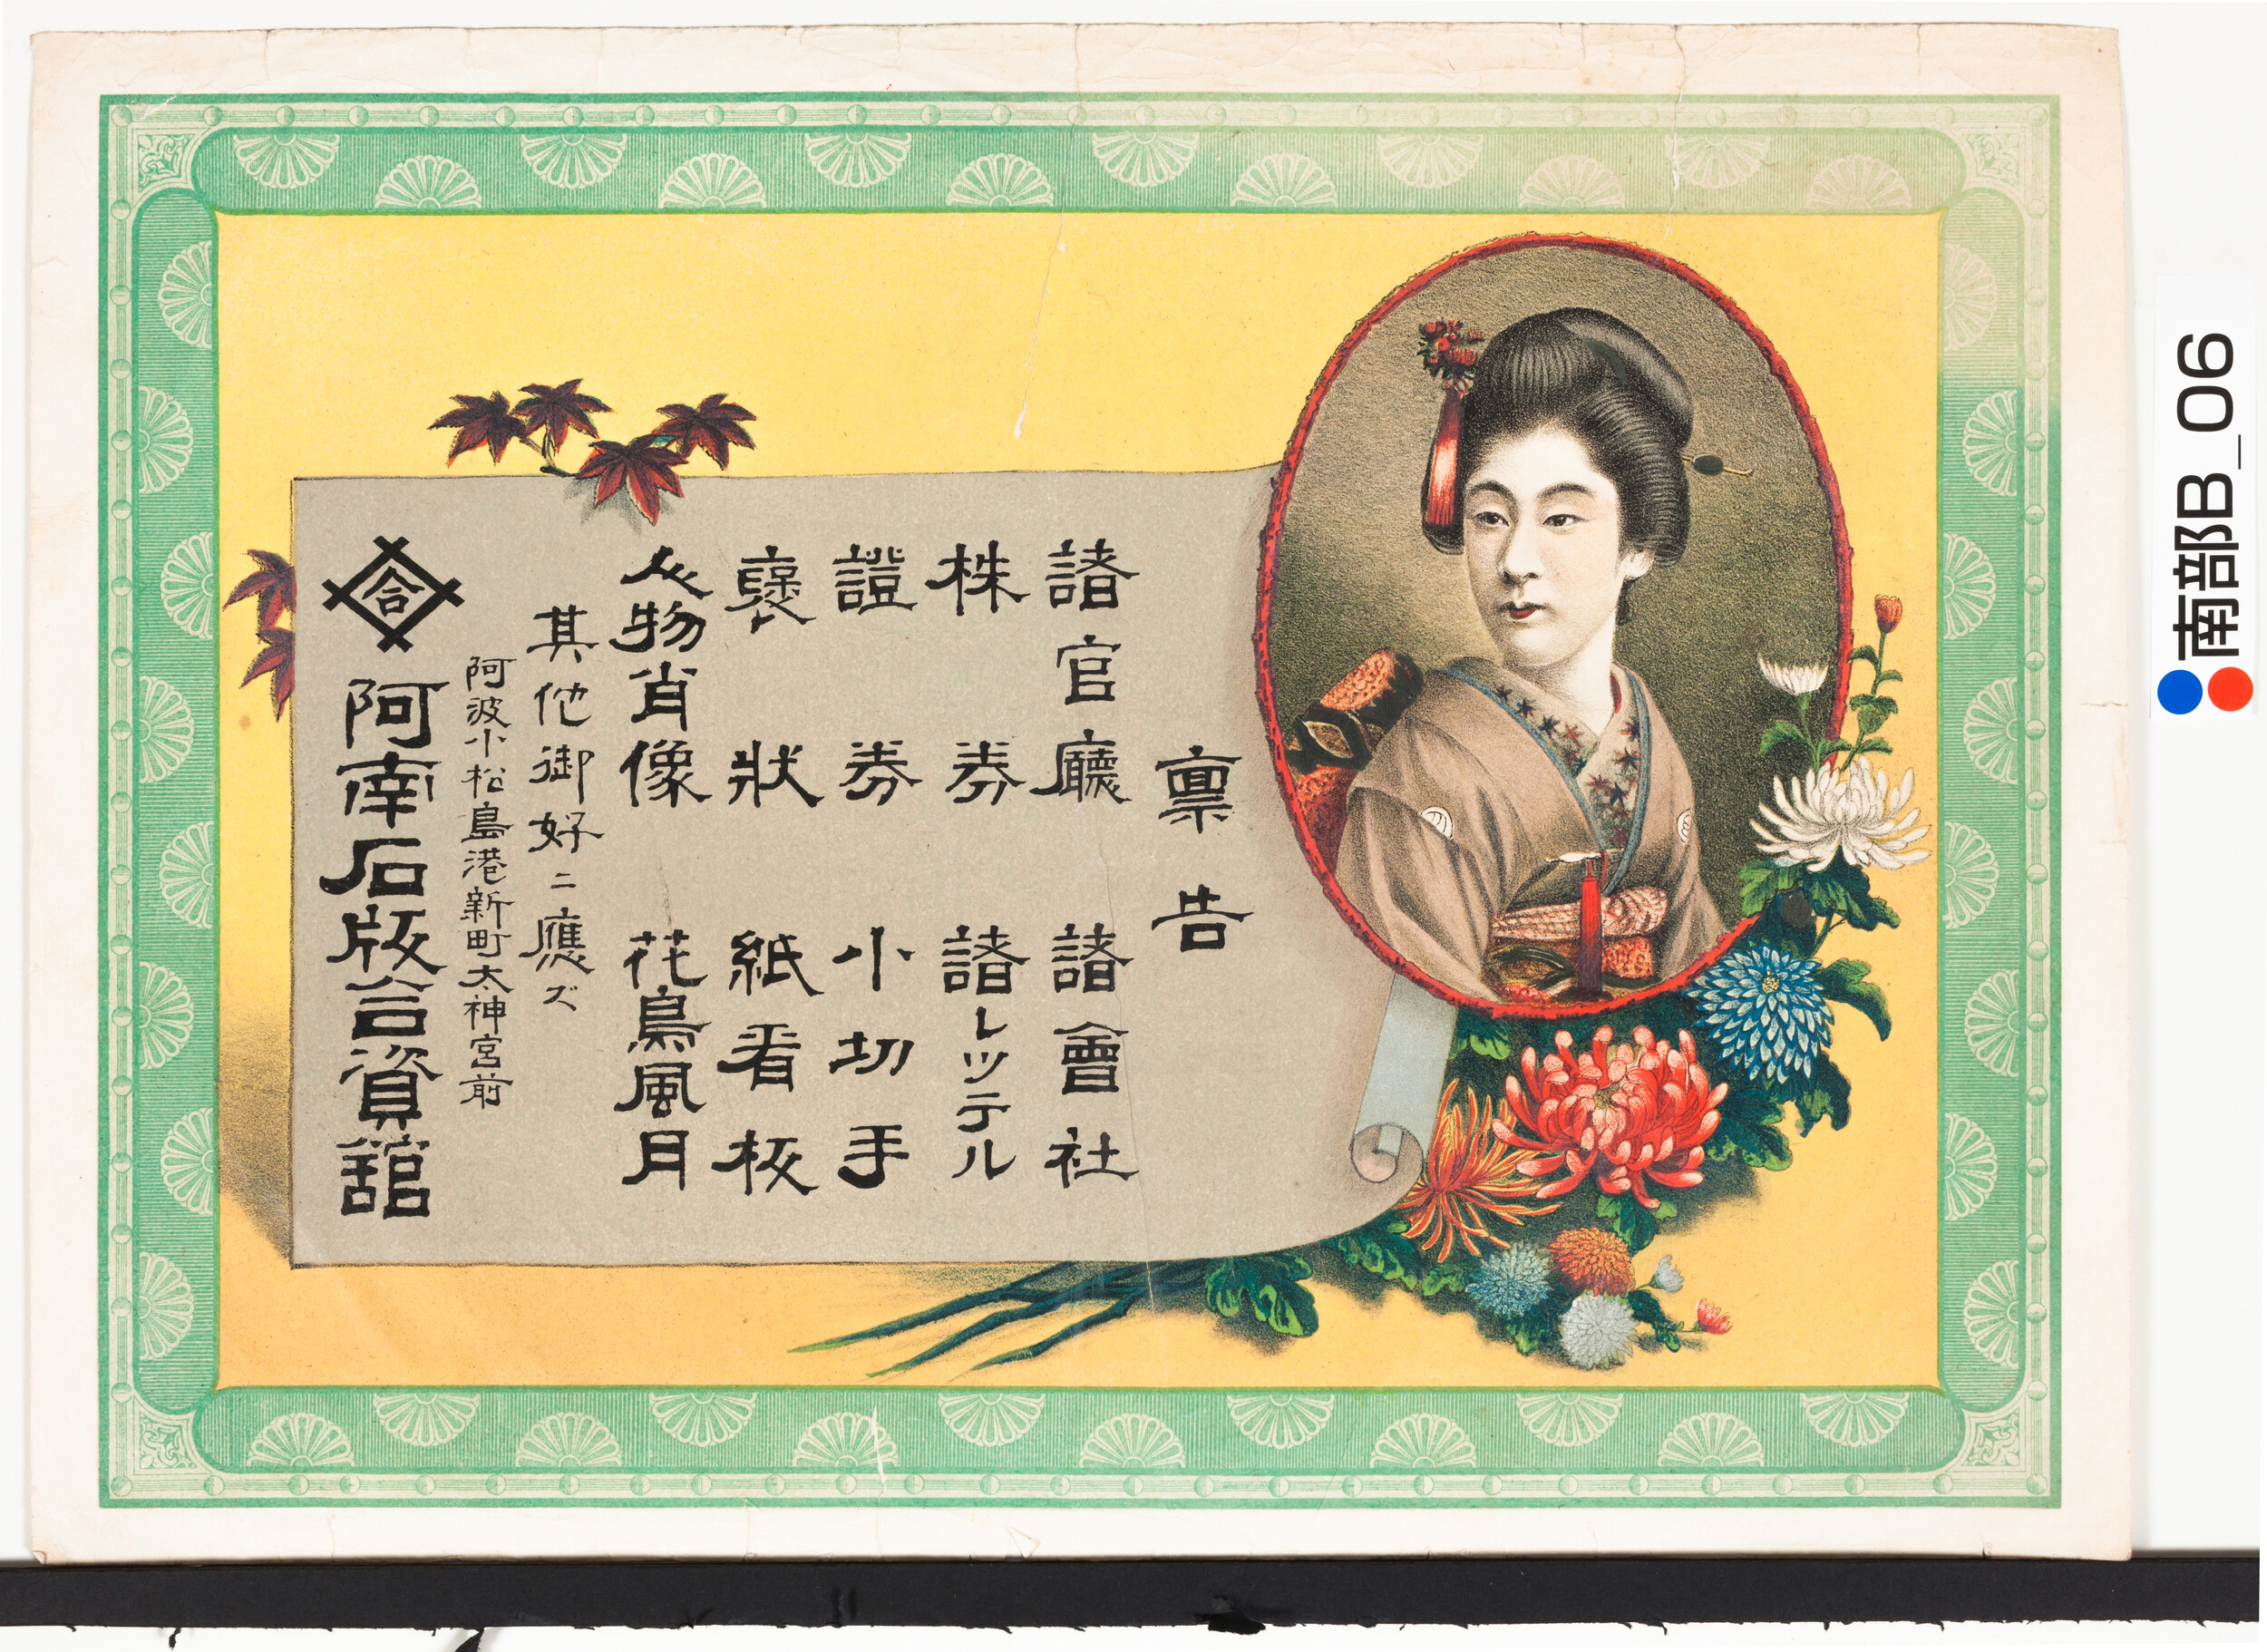 稟告
諸官廳 諸會社
株券 諸レッテル
證券 小切手
褒狀 紙看板
人物肖像 花鳥風月
其他御好ニ應ズ
阿波小松島港新町太神宮前
合
阿南石版合資舘
南部B_06